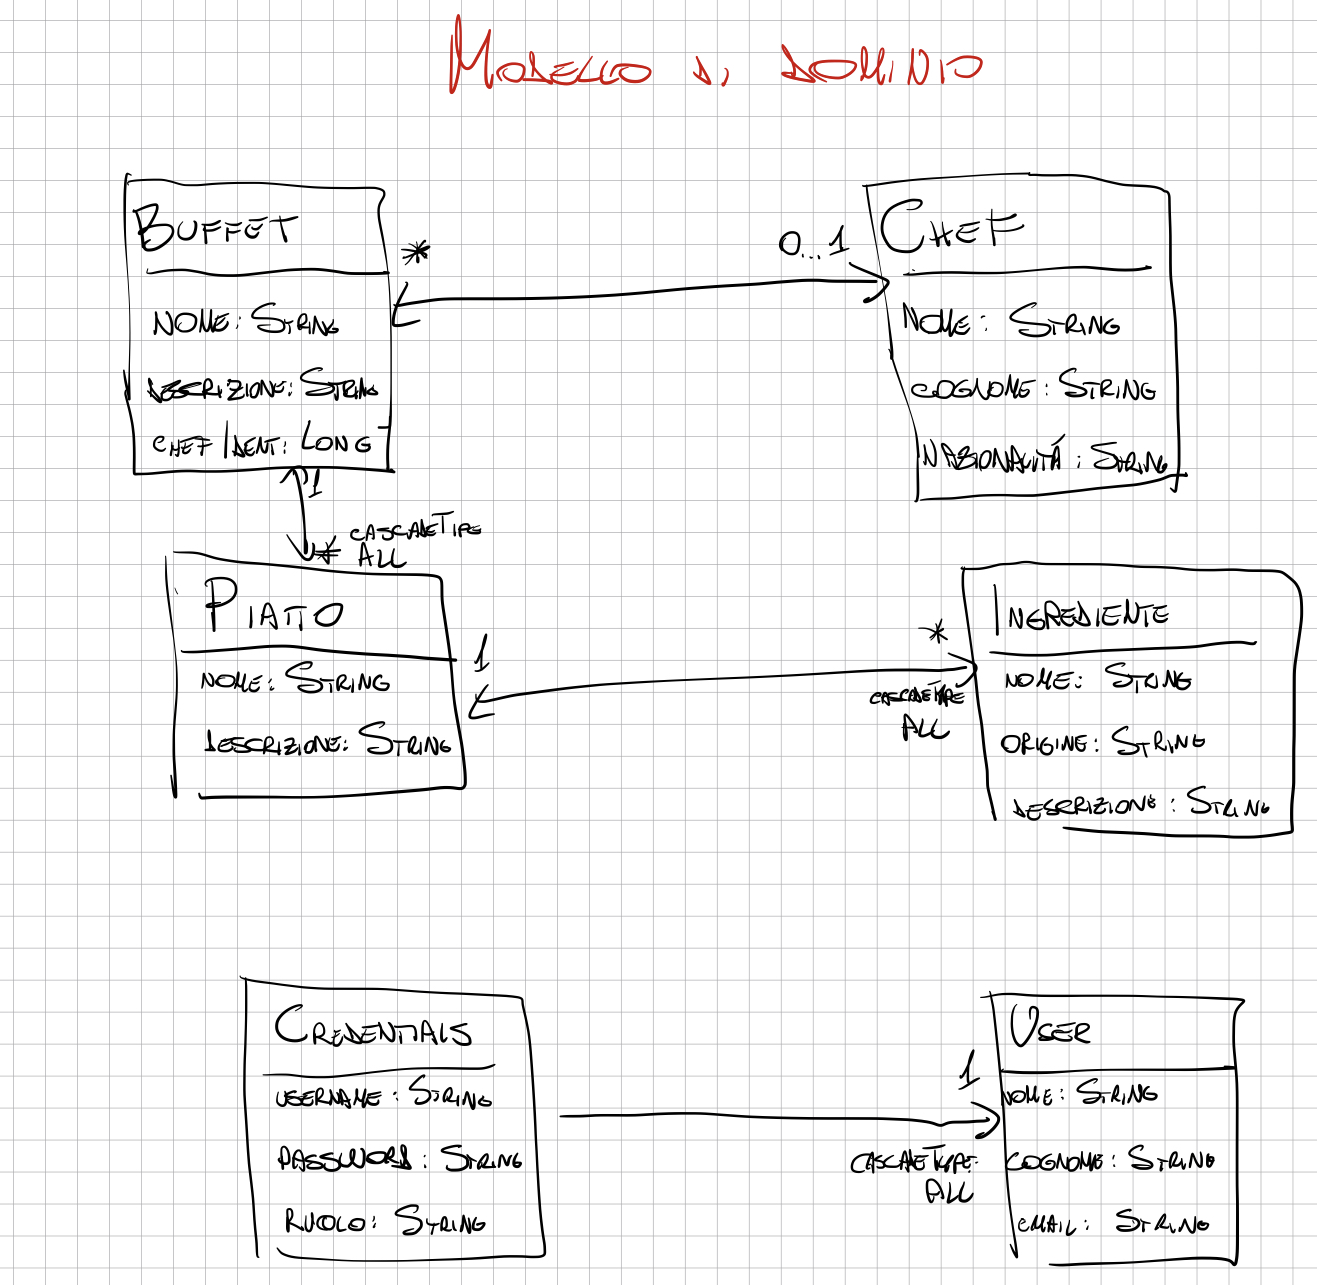 MODELLO DI DOMINIO
BUFFET
NOME: STRING
DESCRIZIONE: STRING
CHEF IDENT: LONG
*
0...1
CHEF
NOME: STRING
COGNOME: STRING
NAZIONALITÁ: STRING
1
*
CASCADETYPE
ALL
PIATTO
NOME: STRING
DESCRIZIONE: STRING
1
*
CASCADETYPE
ALL
INGREDIENTE
NOME: STRING
ORIGINE: STRING
DESCRIZIONE: STRING
CREDENTIALS
USERNAME: STRING
PASSWORD: STRING
RUOLO: STRING
1
CASCADETYPE:
ALL
USER
NOME: STRING
COGNOME: STRING
EMAIL: STRING